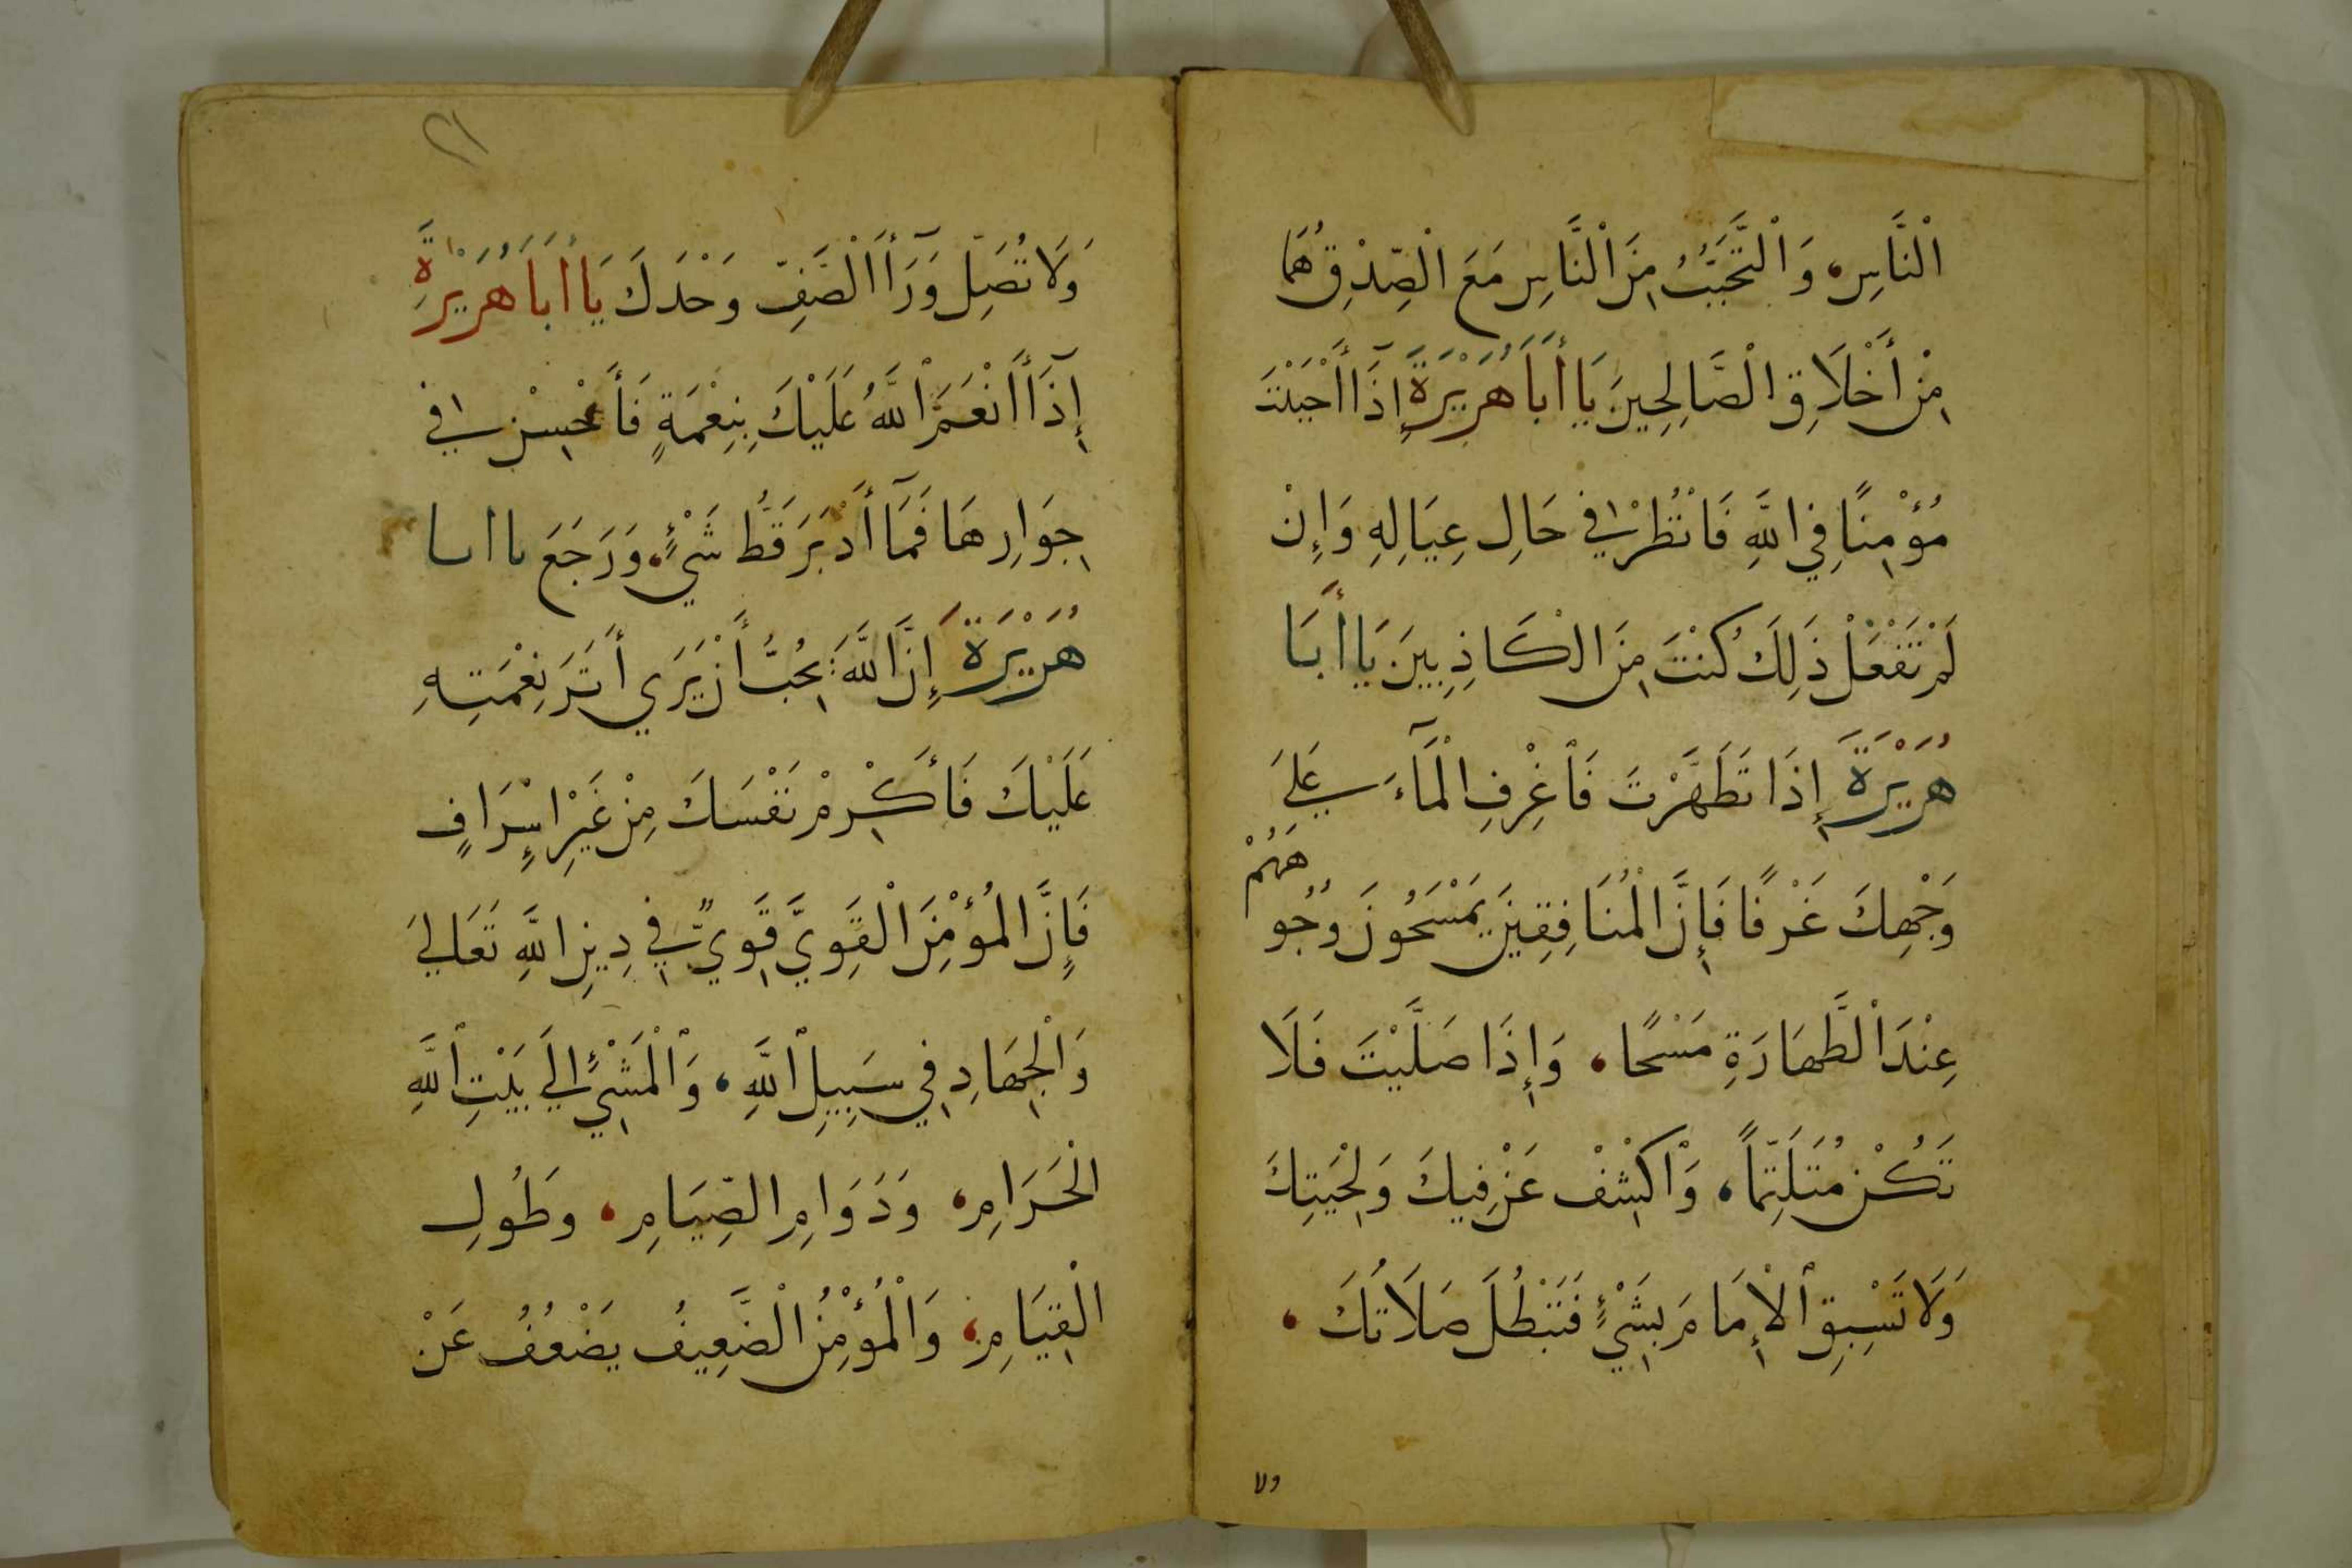 الْنَّاسِ، وَالْتَّحَبُّبُ مِنَ الْنَّاسِ مَعَ الْصِّدْقِ هُمَا
مِنْ أَخْلَاقِ الْصَّالِحِينَ يَا أَبَا هُرَيْرَةَ إِذَا أَحْبَبْتَ
مُؤْمِنًا فِي اللَّهِ فَانْظُرْ فِي حَالِ عِيَالِهِ وَإِنْ
لَمْ تَفْعَلْ ذَلِكَ كُنْتَ مِنَ الْكَاذِبِينَ يَا أَبَا
هُرَيْرَةَ إِذَا تَطَهَّرْتَ فَاغْرِفِ الْمَآءَ عَلَى
وَجْهِكَ غَرْفًا فَإِنَّ الْمُنَافِقِينَ يَمْسَحُونَ وُجُوهَهُمْ
عِنْدَ الْطَّهَارَةِ مَسْحًا، وَإِذَا صَلَّيْتَ فَلَا
تَكُنْ مُتَلَثِّمًا، وَاكْشِفْ عَنْ فِيكَ وَلِحْيَتِكَ
وَلَا تَسْبِقِ الْإِمَامَ بِشَيْءٍ فَتَبْطُلَ صَلَاتُكَ،
ولا
٢١
وَلَا تُصَلِّ وَرَآءَ الْصَّفِّ وَحْدَكَ يَا أَبَا هُرَيْرَةَ
إِذَآ أَنْعَمَ اللَّهُ عَلَيْكَ بِنِعْمَةٍ فَأَحْسِنْ فِي
جِوَارِهَا فَمَآ أَدْبَرَ قَطُّ شَيْءٌ، وَرَجَعَ يا ابا
هُرَيْرَةَ إِنَّ اللَّهَ يُحِبُّ أَنْ يَرَي أَثَرَ نِعْمَتِهِ
عَلَيْكَ فَأَكْرِمْ نَفْسَكَ مِنْ غَيْرِ إِسْرَافٍ
فَإِنَّ الْمُؤْمِنَ الْقَوِيَّ قَوِيٌّ فِي دِينِ اللَّهِ تَعَالَي
وَالْجِهَادِ فِي سَبِيلِ اللَّهِ، وَالْمَشْيِ إِلَي بَيْتِ اللَّهِ
الْحَرَامِ، وَدَوَامِ الصِّيَامِ، وَطُولِ
الْقِيَامِ، وَالْمُؤْمِنُ الْضَّعِيفُ يَضْعُفُ عَنْ